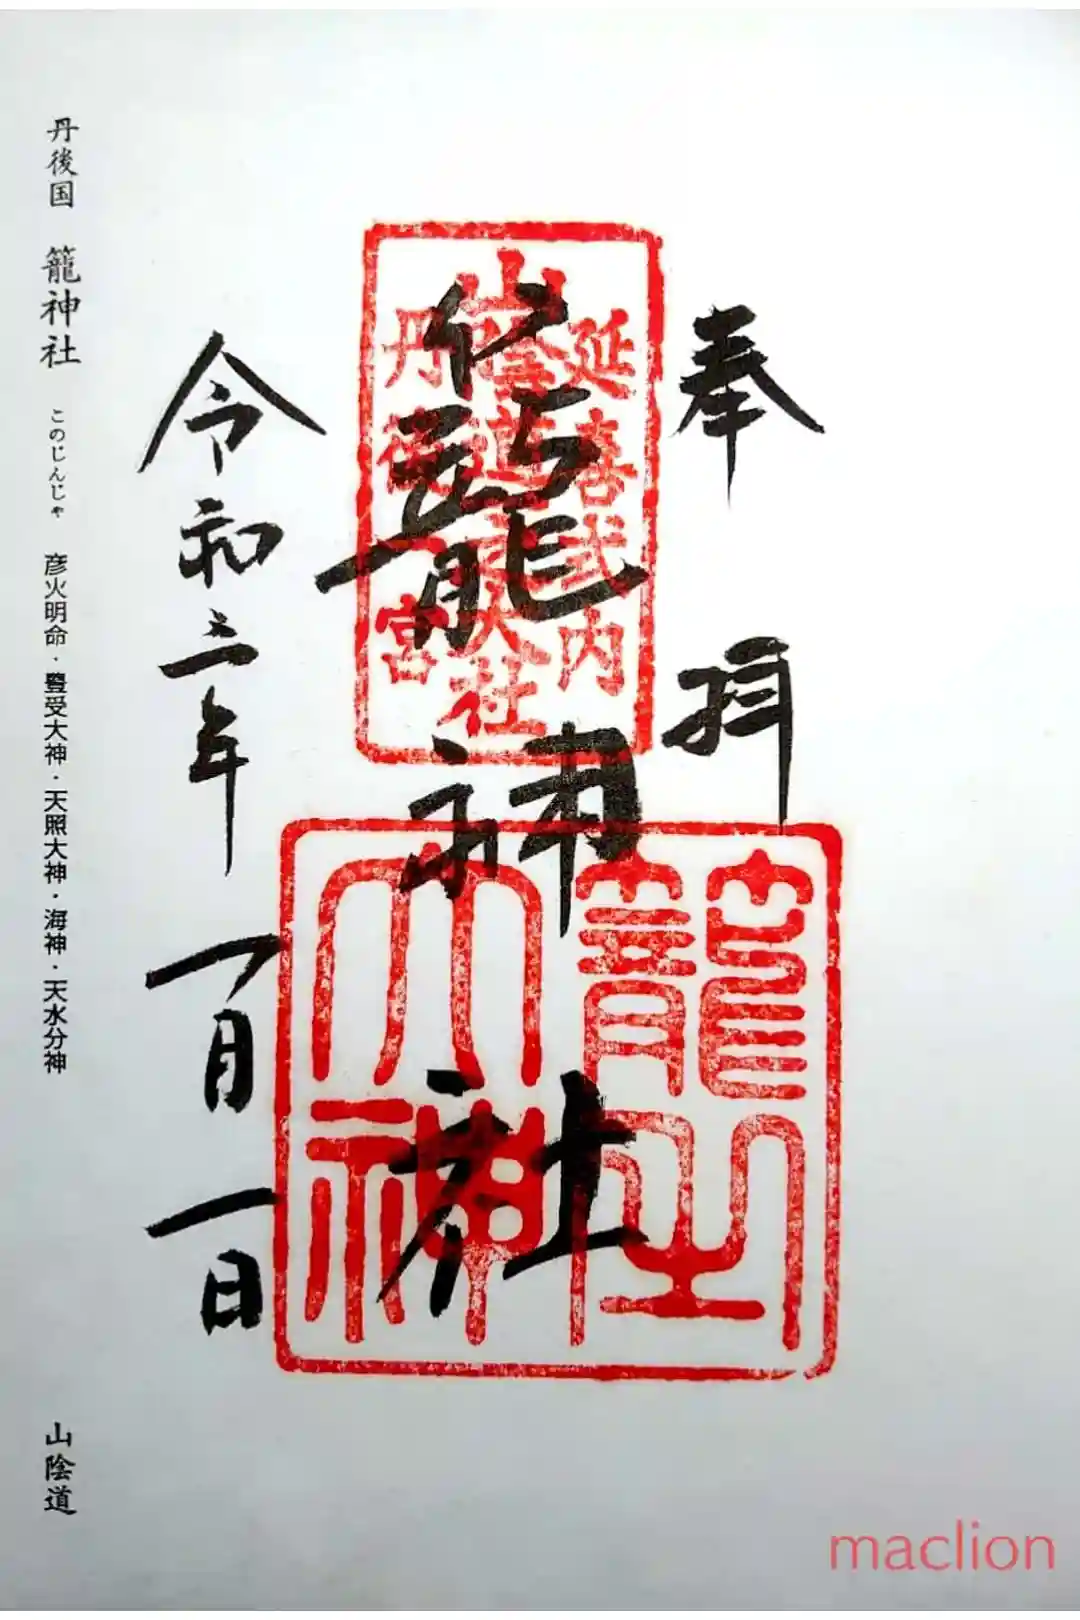 奉拝
延喜式内
山陰道一大社
丹後一宮
籠神社
籠之大神
令和三年一月一日
丹後国 籠神社 このじんじゃ 彦火明命・豊受大神・天照大神・海神・天水分神 山陰道
maclion